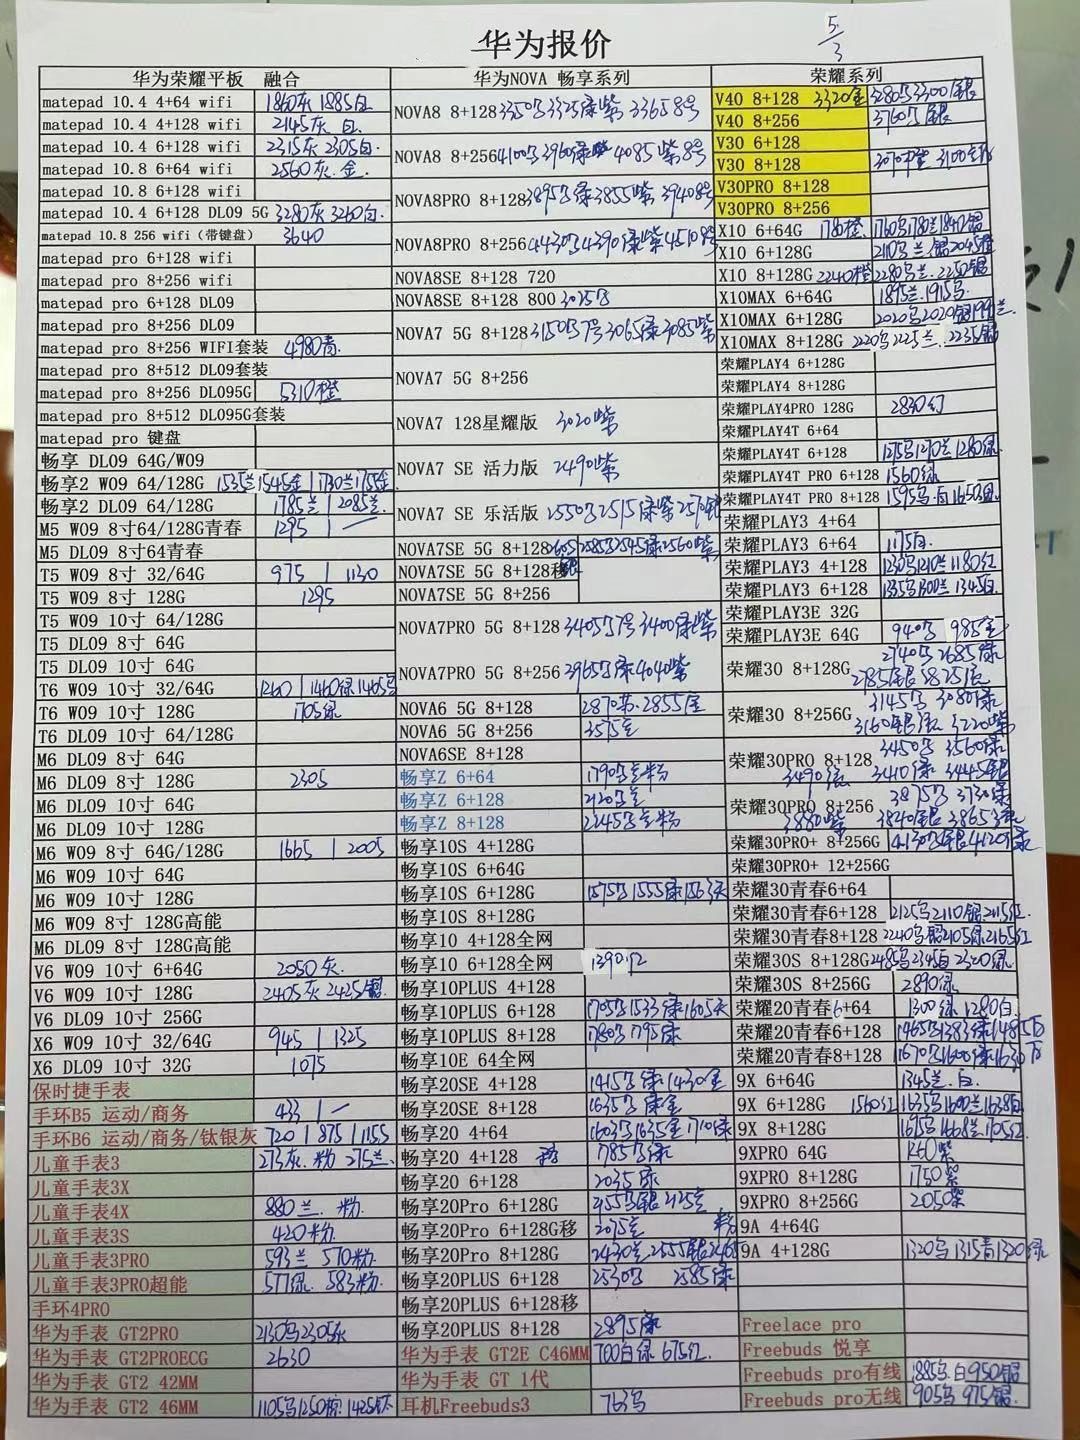 华为报价
5/3
华为荣耀平板 融合
matepad 10.4 4+64 wifi 1860灰 1885白
matepad 10.4 4+128 wifi 2145灰 白
matepad 10.4 6+128 wifi 2315灰 2305白
matepad 10.8 6+64 wifi 2560灰.金.
matepad 10.8 6+128 wifi
matepad 10.4 6+128 DL09 5G 3280灰 3260白
matepad 10.8 256 wifi（带键盘） 3640
matepad pro 6+128 wifi
matepad pro 8+256 wifi
matepad pro 6+128 DL09
matepad pro 8+256 DL09
matepad pro 8+256 WIFI套装 4980青.
matepad pro 8+512 DL09套装
matepad pro 8+256 DL095G 5310橙
matepad pro 8+512 DL095G套装
matepad pro 键盘
畅享 DL09 64G/W09
畅享2 W09 64/128G 1535兰1545金 | 1730兰1755金
畅享2 DL09 64/128G 1785兰 | 2085兰.
M5 W09 8寸64/128G青春 1295 | —
M5 DL09 8寸64青春
T5 W09 8寸 32/64G 975 | 1130
T5 W09 8寸 128G 1295
T5 W09 10寸 64/128G
T5 DL09 8寸 64G
T5 DL09 10寸 64G
T6 W09 10寸 32/64G 1260 | 1460绿1465乌
T6 W09 10寸 128G 1705绿
T6 DL09 10寸 64/128G
M6 DL09 8寸 64G
M6 DL09 8寸 128G 2305
M6 DL09 10寸 64G
M6 DL09 10寸 128G
M6 W09 8寸 64G/128G 1665 | 2005
M6 W09 10寸 64G
M6 W09 10寸 128G
M6 W09 8寸 128G高能
M6 DL09 8寸 128G高能
V6 W09 10寸 6+64G 2050灰.
V6 W09 10寸 128G 2405灰 2425银
V6 DL09 10寸 256G
X6 W09 10寸 32/64G 945 | 1325
X6 DL09 10寸 32G 1075
保时捷手表
手环B5 运动/商务 433 | —
手环B6 运动/商务/钛银灰 720 | 875 | 1155
儿童手表3 273灰.粉 275兰.
儿童手表3X
儿童手表4X 880兰.粉.
儿童手表3S 420粉.
儿童手表3PRO 593兰 570粉.
儿童手表3PRO超能 577绿. 583粉.
手环4PRO
华为手表 GT2PRO 2130乌2305灰
华为手表 GT2PROECG 2630
华为手表 GT2 42MM
华为手表 GT2 46MM 1105乌1250棕.1425钛
华为NOVA 畅享系列
NOVA8 8+128 3350乌3325绿紫 3365 8号
NOVA8 8+256 4100乌3960绿 4085紫8号
NOVA8PRO 8+128 3895乌绿3855紫 3940 8号
NOVA8PRO 8+256 4430乌4390绿紫4510 8号
NOVA8SE 8+128 720
NOVA8SE 8+128 800 3025乌
NOVA7 5G 8+128 3150乌7号3065绿3085紫
NOVA7 5G 8+256
NOVA7 128星耀版 3020紫
NOVA7 SE 活力版 2490紫
NOVA7 SE 乐活版 2550乌2515绿紫2570银
NOVA7SE 5G 8+128 2605银 2585乌2545绿2560紫
NOVA7SE 5G 8+128移
NOVA7SE 5G 8+256
NOVA7PRO 5G 8+128 3405乌7号3400绿紫
NOVA7PRO 5G 8+256 3965乌绿4040紫
NOVA6 5G 8+128 2870苏.2855金
NOVA6 5G 8+256 3575金
NOVA6SE 8+128
畅享Z 6+64 1790乌兰粉
畅享Z 6+128 2120乌兰
畅享Z 8+128 2245乌兰粉
畅享10S 4+128G
畅享10S 6+64G
畅享10S 6+128G 1575乌1555绿1563天
畅享10S 8+128G
畅享10 4+128全网
畅享10 6+128全网 1390红
畅享10PLUS 4+128
畅享10PLUS 6+128 1705乌1533绿1605天
畅享10PLUS 8+128 1780乌1795绿
畅享10E 64全网
畅享20SE 4+128 1415乌绿.1430金
畅享20SE 8+128 1635乌绿金
畅享20 4+64 1603乌1635金1710绿
畅享20 4+128 移 1785乌绿
畅享20 6+128 2035绿
畅享20Pro 6+128G 2455乌银2425兰
畅享20Pro 6+128G移 2075兰
畅享20Pro 8+128G 2430兰2555银2465粉
畅享20PLUS 6+128 2530乌 2585绿
畅享20PLUS 6+128移
畅享20PLUS 8+128 2895绿
华为手表 GT2E C46MM 700白绿 675红.
华为手表 GT 1代
耳机Freebuds3 763乌
荣耀系列
V40 8+128 3320金 3280乌3300银
V40 8+256 3760乌银
V30 6+128
V30 8+128
V30PRO 8+128
V30PRO 8+256
X10 6+64G 1780橙. 1760乌1780兰1840银
X10 6+128G 2110乌兰.银2045橙
X10 8+128G 2240橙 2280乌兰.2250银
X10MAX 6+64G 1895兰.1915乌
X10MAX 6+128G 2020乌2020银1991兰
X10MAX 8+128G 2220乌2225兰.2235银
荣耀PLAY4 6+128G
荣耀PLAY4 8+128G
荣耀PLAY4PRO 128G 2830幻
荣耀PLAY4T 6+64
荣耀PLAY4T 6+128 1275乌1270兰1280绿
荣耀PLAY4T PRO 6+128 1560绿
荣耀PLAY4T PRO 8+128 1595乌.白1650绿
荣耀PLAY3 4+64
荣耀PLAY3 6+64 1175白.
荣耀PLAY3 4+128 1230乌1210兰1180红
荣耀PLAY3 6+128 1335乌1300兰1345白
荣耀PLAY3E 32G
荣耀PLAY3E 64G 940乌 985金
荣耀30 8+128G 2740乌2685绿
2785银 2825流
荣耀30 8+256G 3145乌 3080绿
3160银流 3220紫
荣耀30PRO 8+128 3450乌 3560绿
3490流 3410绿 3445银
荣耀30PRO 8+256 3875乌 3730绿
3880紫 3840银 3865绿
荣耀30PRO+ 8+256G 4130乌银4120绿
荣耀30PRO+ 12+256G
荣耀30青春6+64
荣耀30青春6+128 2125乌2110银.2115红.
荣耀30青春8+128 2240乌银2105绿2165红
荣耀30S 8+128G 2485乌2345白2320绿
荣耀30S 8+256G 2890绿
荣耀20青春6+64 1300绿1280白
荣耀20青春6+128 1465乌1383绿1485白
荣耀20青春8+128 1670乌1600绿1630白
9X 6+64G 1345兰.白.
9X 6+128G 1560红 1635乌1600兰1638白
9X 8+128G 1675乌1668兰1705红
9XPRO 64G 1460紫
9XPRO 8+128G 1750紫
9XPRO 8+256G 2050紫
9A 4+64G
9A 4+128G 1320乌1315青1320绿
Freelace pro
Freebuds 悦享
Freebuds pro有线 885乌.白950银
Freebuds pro无线 905乌 975银.